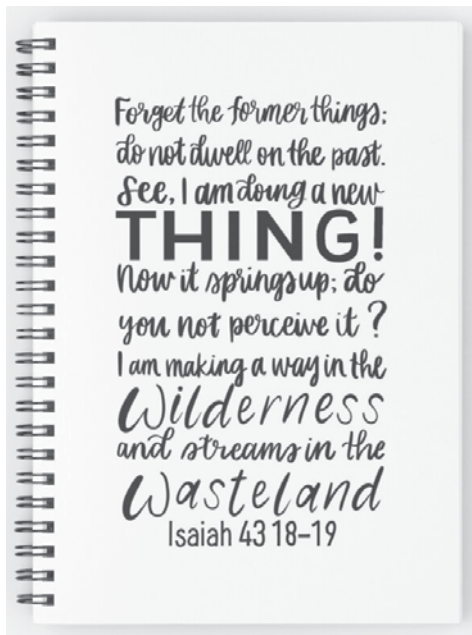 Forget the former things;
do not dwell on the past.
See, I am doing a new
THING!
Now it springs up; do
you not perceive it?
I am making a way in the
Wilderness
and streams in the
Wasteland
Isaiah 43 18-19